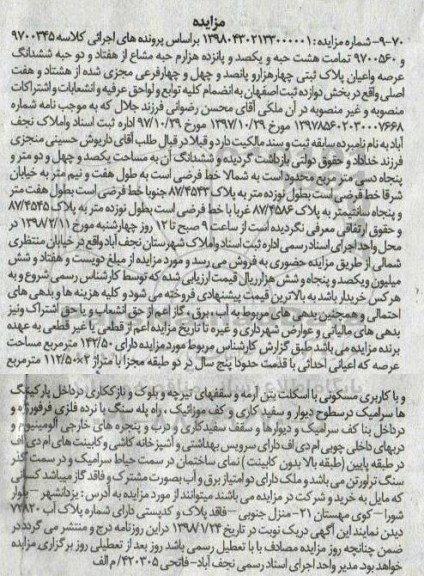 مزایده
۷۰-۹- شماره مزایده: ۱۳۹۸۰۴۳۰۲۱۳۳۰۰۰۰۰۱ براساس پرونده های اجرائی کلاسه ۹۷۰۰۳۴۵
و ۹۷۰۰۵۶۰ تمامت هشت حبه و یکصد و پانزده هزارم حبه مشاع از هفتاد و دو حبه ششدانگ
عرصه واعیان پلاک ثبتی چهارهزارو پانصد و چهل و چهارفرعی مجزی شده از هشتاد و هفت
اصلی واقع در بخش دوازده ثبت اصفهان به انضمام کلیه توابع و لواحق عرفیه و انشعابات واشتراکات
منصوبه و غیر منصوبه در آن ملکی آقای محسن رضوانی فرزند جلال که به موجب نامه شماره
۱۳۹۷۸۵۶۰۲۰۳۰۰۰۷۶۶۸ مورخ ۱۳۹۷/۱۰/۲۹ مورخ ۹۷/۱۰/۲۹ اداره ثبت اسناد واملاک نجف
آباد به نام نامبرده سابقه ثبت و سند مالکیت دارد و قبلا در قبال طلب آقای داریوش حسینی منجزی
فرزند خداداد و حقوق دولتی بازداشت گردیده و ششدانگ آن به مساحت یکصد و چهل و دو متر و
پنجاه دسی متر مربع محدود است به شمالا خط فرضی است به طول هفت و نیم متر به خیابان
شرقا خط فرضی است بطول نوزده متر به پلاک ۸۷/۴۵۴۳ جنوبا خط فرضی است بطول هفت متر
و پنجاه سانتیمتر به پلاک ۸۷/۴۵۸۶ غربا با خط فرضی است بطول نوزده متر به پلاک ۸۷/۴۵۴۵
و حقوق ارتفاقی معرفی نگردیده است از ساعت ۹ صبح تا ۱۲ روز چهارشنبه مورخ ۱۳۹۸/۲/۱۱ در
محل واحد اجرای اسناد رسمی اداره ثبت اسناد واملاک شهرستان نجف آباد واقع در خیابان منتظری
شمالی از طریق مزایده حضوری به فروش می رسد و مورد مزایده از مبلغ دویست و هفتاد و شش
میلیون ویکصد و پنجاه و شش هزارریال قیمت ارزیابی شده که توسط کارشناس رسمی شروع و به
هر کس خریدار باشد به بالاترین قیمت پیشنهادی فروخته می شود و کلیه هزینه ها و بدهی های
احتمالی و همچنین بدهی های مربوط به آب ، برق ، گاز اعم از حق انشعاب و یا حق اشتراک ونیز
بدهی های مالیاتی و عوارض شهرداری و غیره تا تاریخ مزایده اعم از قطعی یا غیر قطعی به عهده
برنده مزایده می باشد طبق گزارش کارشناس مربوط مورد مزایده دارای ۱۴۲/۵۰ مترمربع مساحت
عرصه که اعیانی احداثی با قدمت حدودا پنج سال در دو طبقه مجزا با متراژ ۲×۱۱۲/۵۰ مترمربع
و با کاربری مسکونی با اسکلت بتن آرمه و سقفهای تیرچه و بلوک و نازککاری درداخل پارکینگ
ها سرامیک درسطوح دیوار و سفید کاری و کف موزائیک ، راه پله سنگ با نرده فلزی فرفورژه و
در داخل بنا کف سرامیک و دیوارها و سقف سفیدکاری و درب و پنجره های خارجی آلومینیوم و
دربهای داخلی چوبی ام دی اف دارای سرویس بهداشتی و آشپزخانه کاشی و کابینت های ام دی اف
در طبقه پایین (طبقه بالا بدون کابینت) نمای ساختمان در سمت حیاط سرامیک و در سمت گذر
سنگ تراورتن می باشد و ملک دارای دو امتیاز برق و آب بصورت مشترک و فاقد گاز میباشد کسانی
که مایل به خرید و شرکت در مزایده می باشند میتوانند از مورد مزایده به آدرس : یزدانشهر – بلوار
شورا – کوی مهستان ۲۱- منزل جنوبی – فاقد پلاک و کدپستی دارای شماره پلاک آب ۷۷۸۲۰
دیدن نمایند این آگهی دریک نوبت در تاریخ ۱۳۹۸/۱/۲۴ دراین روزنامه درج و منتشر می گردد در
ضمن چنانچه روز مزایده مصادف با با تعطیل رسمی باشد روز بعد از تعطیلی روز برگزاری مزایده
خواهد بود. مدیر واحد اجرای اسناد رسمی نجف آباد- فاتحی ۴۲۰۳۰۵/م الف